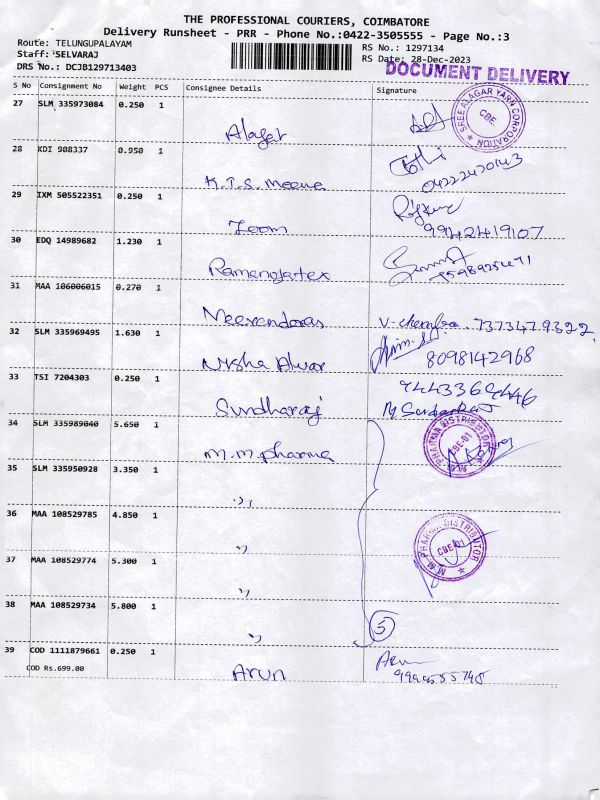 THE PROFESSIONAL COURIERS, COIMBATORE
Delivery Runsheet - PRR - Phone No.:0422-3505555 - Page No.:3
Route: TELUNGUPALAYAM RS No.: 1297134
Staff: SELVARAJ RS Date: 28-Dec-2023
DRS No.: DCJB129713403 DOCUMENT DELIVERY
S No Consignment No Weight PCS Consignee Details Signature
27 SLM 335973084 0.250 1 Alagar
SREE ALAGAR YARN CORPORATION CBE
28 KDI 908337 0.950 1 K.T.S. Meena
04222470143
29 IXM 505522351 0.250 1 Zoom
9942419107
30 EDQ 14989682 1.230 1 Ramanojatex
31 MAA 106006015 0.270 1 Meerendoras
7373479322
32 SLM 335969495 1.630 1 Nisha Alwar
8098142968
33 TSI 7204303 0.250 1 Sundharaj
34 SLM 335989040 5.650 1 M.M. pharma
M.M. PHARMA DISTRIBUTOR CBE-01
35 SLM 335950928 3.350 1 ,,
36 MAA 108529785 4.850 1 ,,
M.M. PHARMA DISTRIBUTOR CBE-01
37 MAA 108529774 5.300 1 ,,
38 MAA 108529734 5.800 1 ,, 5
39 COD 1111879661 0.250 1 Arun Arun
COD Rs.699.00